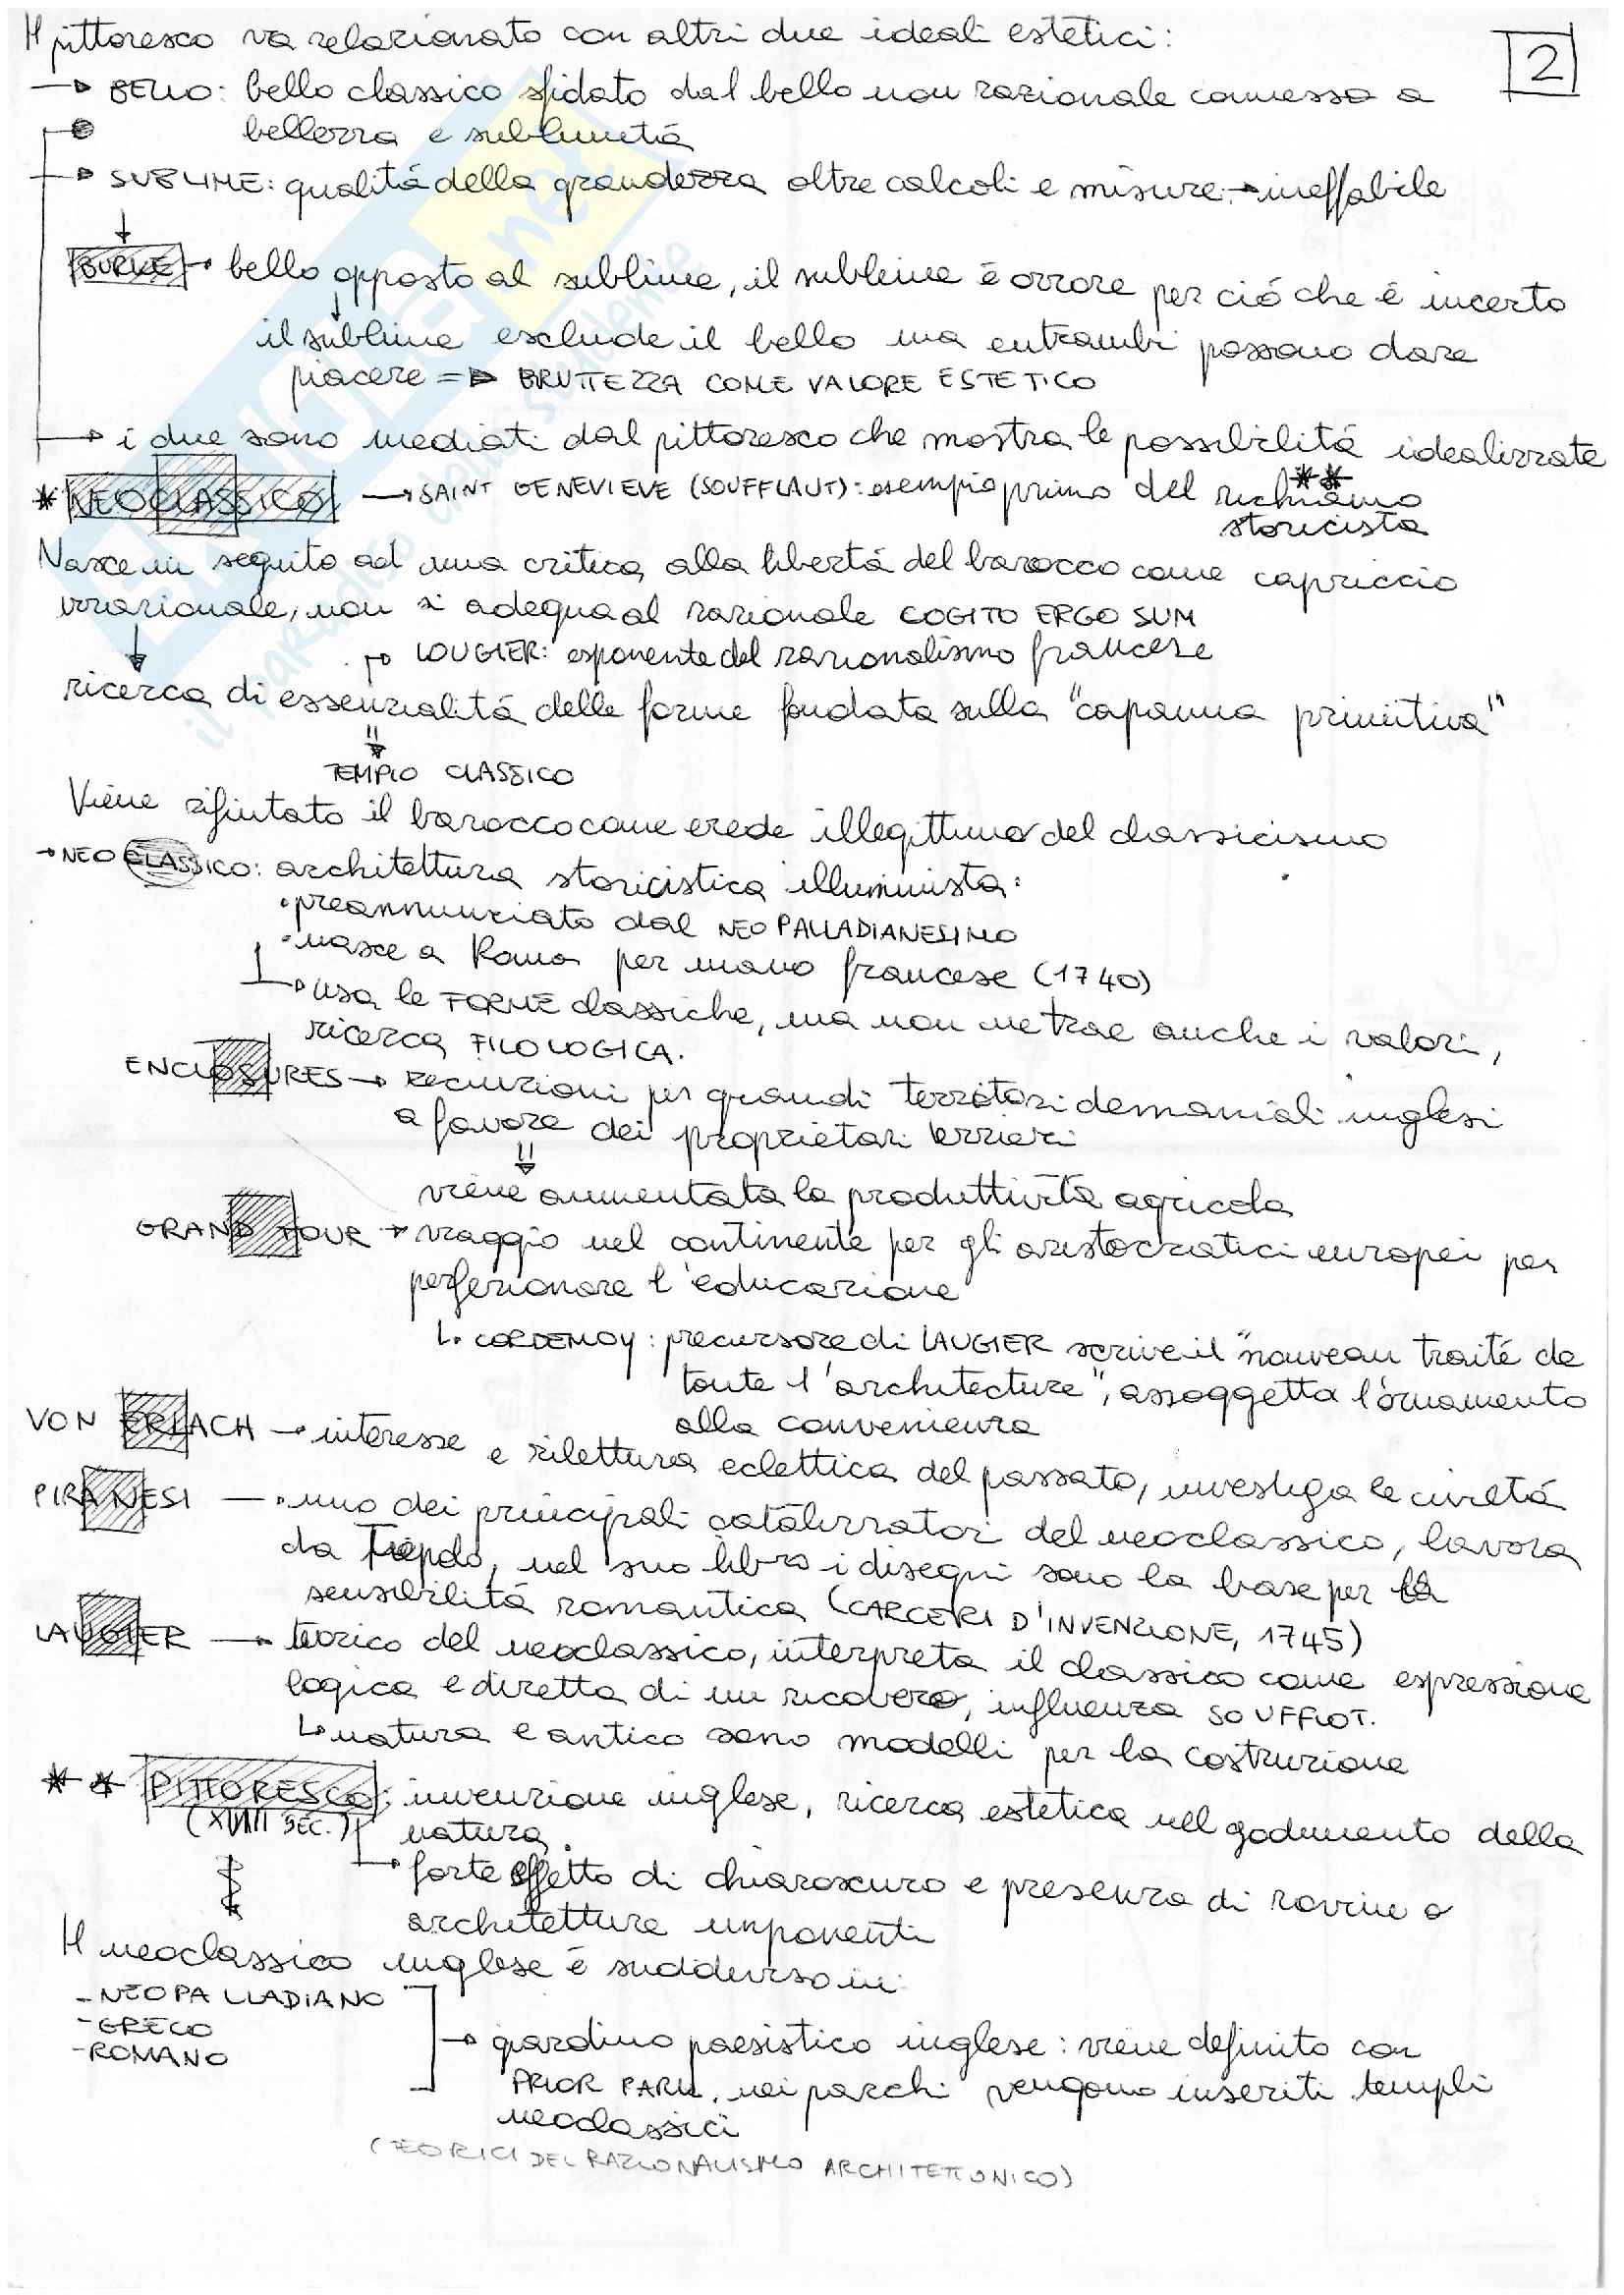 Il pittoresco va relazionato con altri due ideali estetici:
2
→ BELLO: bello classico sfidato dal bello non razionale connesso a
bellezza e sublimità
→ SUBLIME: qualità della grandezza oltre calcoli e misure → ineffabile
BURKE → bello opposto al sublime, il sublime è orrore per ciò che è incerto
il sublime esclude il bello ma entrambi possono dare
piacere => BRUTTEZZA COME VALORE ESTETICO
→ i due sono mediati dal pittoresco che mostra le possibilità idealizzate
* NEOCLASSICO → SAINT GENEVIEVE (SOUFFLAUT): esempio primo del richiamo **
storicista
Nasce in seguito ad una critica alla libertà del barocco come capriccio
irrazionale, non si adegua al razionale COGITO ERGO SUM
→ LOUGIER: esponente del razionalismo francese
ricerca di essenzialità delle forme fondata sulla "capanna primitiva"
TEMPIO CLASSICO
Viene rifiutato il barocco come erede illegittimo del classicismo
→ NEOCLASSICO: architettura storicistica illuminista:
• preannunziato dal NEOPALLADIANESIMO
• nasce a Roma per mano francese (1740)
→ usa le FORME classiche, ma non ne trae anche i valori,
ricerca FILOLOGICA.
ENCLOSURES → recinzioni per grandi territori demaniali inglesi
a favore dei proprietari terrieri
viene aumentata la produttività agricola
GRAND TOUR → viaggio nel continente per gli aristocratici europei per
perfezionare l'educazione
↳ CORDEMOY: precursore di LAUGIER scrive il "nouveau traité de
toute l'architecture", assoggetta l'ornamento
alla convenienza
VON ERLACH → interesse e rilettura eclettica del passato, investiga le civiltà
PIRANESI → uno dei principali catalizzatori del neoclassico, lavora
da Tiepolo, nel suo libro i disegni sono la base per la
sensibilità romantica (CARCERI D'INVENZIONE, 1745)
LAUGIER → teorico del neoclassico, interpreta il classico come espressione
logica e diretta di un ricovero, influenza SOUFFLOT.
↳ natura e antico sono modelli per la costruzione
** PITTORESCO: invenzione inglese, ricerca estetica nel godimento della
(XVIII SEC.) natura.
→ forte effetto di chiaroscuro e presenza di rovine o
architetture imponenti
Il neoclassico inglese è suddiviso in:
- NEOPALLADIANO
- GRECO
- ROMANO
→ giardino paesistico inglese: viene definito con
PRIOR PARK, nei parchi vengono inseriti templi
neoclassici
(TEORICI DEL RAZIONALISMO ARCHITETTONICO)